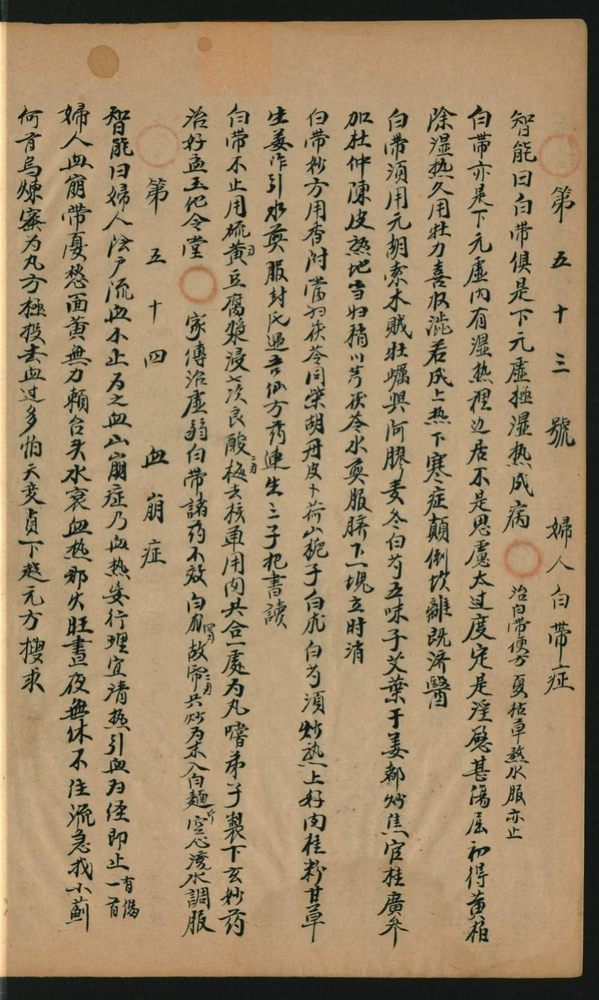 第五十三號 婦人白帶症
智能曰白帶俱是下元虛極濕热成病 治白帶便方夏枯草熬水服亦止
白帶亦是下元虛內有濕热裡边居不是思慮太过度定是淫慾甚傷屈初得黄柏
除濕热久用牡力喜收澁若成上热下寒症顛倒坎離既济醫
白帶須用元胡索木賊牡蠣與阿膠麦冬白芍五味子艾葉干姜都炒焦官桂廣参
加杜仲陳皮熟地當归稍川芎茯苓水煎服臍下一塊立时消
白帶妙方用香附當归茯苓同柴胡丹皮卜荷山梔子白朮白芍須炒热上好肉桂粉甘草
生姜作引水煎服封氏遇吾仙方药連生三子把書讀
白帶不止用硫黄豆腐漿浸艮酸梅去核車用肉共合一處为丸嗜弟子製下玄妙药
治好孟玉化令堂 家傳治虛弱白帶諸药不效白故帋共炒为末入白麵空心滚水調服
第五十四 血崩症
智能曰婦人陰户流血不止为之血山崩症乃血热妄行理宜清热引血归經即止有偈一首
婦人血崩帶憂愁面黄無力賴台头水衰血热那火旺晝夜無休不住流急找小薊
何首烏煉蜜为丸方極投去血过多怕天变貞下起元方搜求